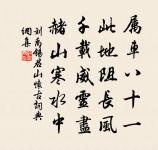 屬車八十一
此地阻長風
千載威靈盡
赭山寒水中
刘禹錫君山懷古詞典
網集